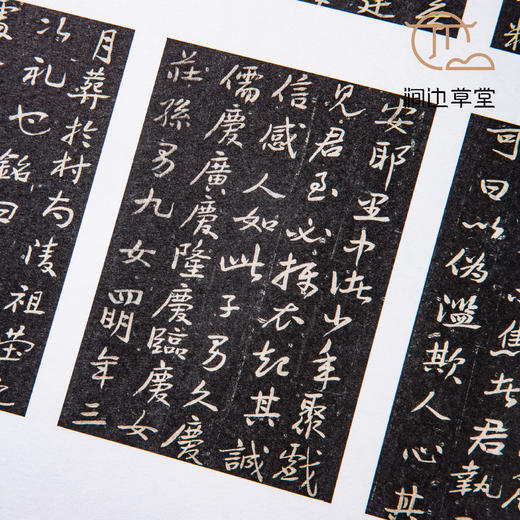 涧边草堂
焦者君執
可曰以偽濫欺人心其
安耶里中诸少年聚戯
見君至必摳衣起其誠
信感人如此子男久慶
儒慶廣慶隆慶臨慶女
莊孫男九女四明年三
月葬於村南陵祖塋
以礼也銘曰